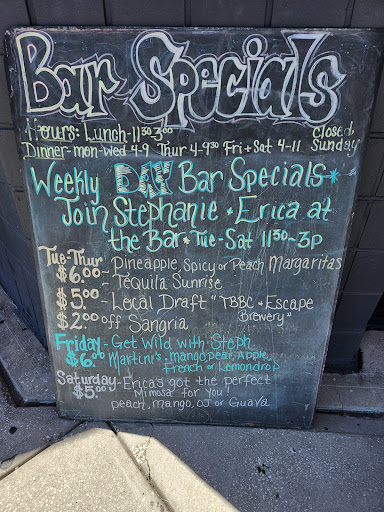 Bar Specials
Hours: Lunch-11:30-3:00 Closed
Dinner-mon-wed 4-9 Thur 4-9:30 Fri + Sat 4-11 Sunday
Weekly DAY Bar Specials*
Join Stephanie + Erica at
the Bar * Tue-Sat 11:30-3p
Tue-Thur
$6.00 ~ Pineapple, Spicy or Peach Margaritas
- Tequila Sunrise
$5.00 - Local Draft "TBBC & Escape
Brewery"
$2.00 off Sangria
Friday - Get Wild with Steph
$6.00 Martini's - Mango, pear, Apple,
French or Lemondrop
Saturday - Erica's got the perfect
$5.00 Mimosa for you!
peach, mango, OJ or Guava